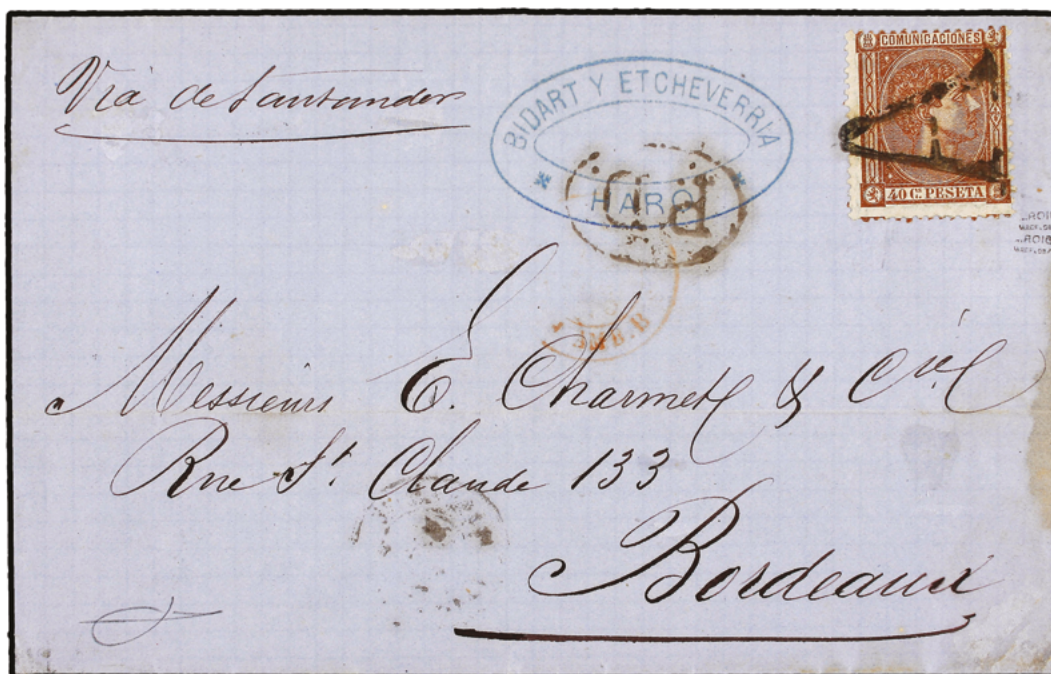 Via de Santander
BIDART Y ETCHEVERRIA
HARO
P.D.
COMUNICACIONES
40 Cs PESETA
Messieurs E. Charmet & Cie
Rue St. Claude 133
Bordeaux